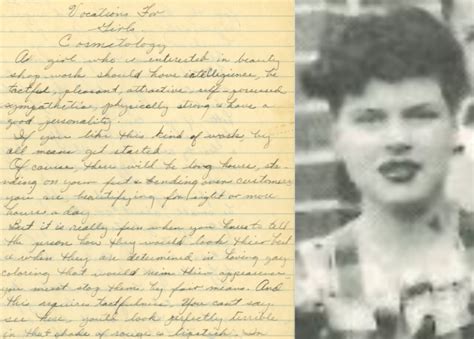 Vocations For
Girls
Cosmatology
A girl who is interested in beauty
shop work should have intelligence, be
tactful, pleasant, attractive, self-possessed
sympathetic, physically strong & have a
good personality.
If you like this kind of work, by
all means get started.
Of course, there will be long hours, sta-
nding on your feet & bending over customers
you are beautifying for eight or more
hours a day.
But it is really fun when you have to tell
the person how they would look their best
& when they are determined in having gay
coloring that would ruin their appearance
you must stop them by fair means. And
this requires tactfulness. You can't say
see here, you'll look perfectly terrible
in that shade of rouge & lipstick.